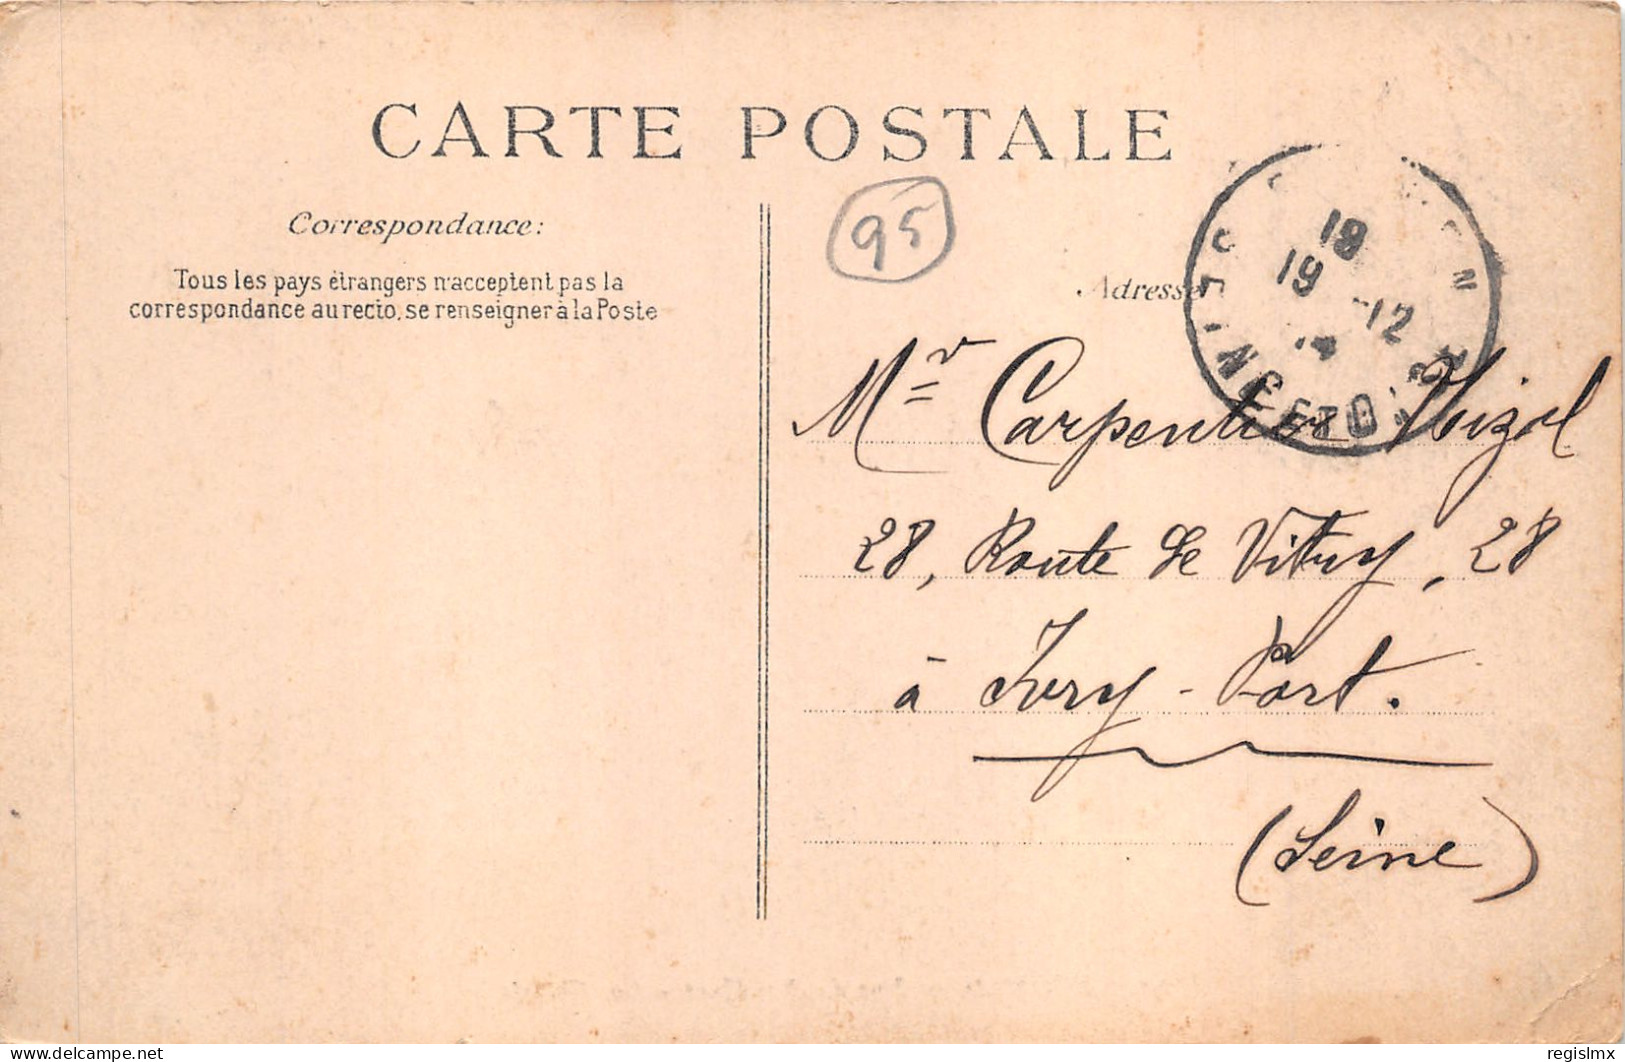 CARTE POSTALE
Correspondance:
Tous les pays étrangers n'acceptent pas la
correspondance au recto, se renseigner à la Poste
95
Adresse
19
19 -12
Mr Carpentier
28, Route de Vitry, 28
à Ivry-Port.
(Seine)
delcampe.net
regislmx